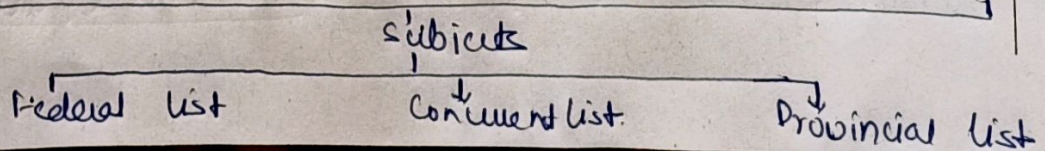 Subjects
Federal list Concurrent list. Provincial list